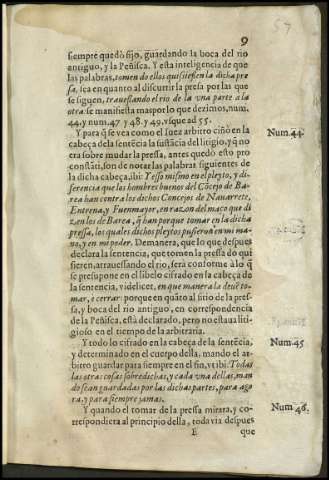 57
9
siempre quedò fijo, guardando la boca del rio
antiguo, y la Peñisca. Y esta inteligencia de que
las palabras, tomen do ellos quisiessen la dicha pre
sa, sea en quanto al discurrir la presa por las que
se siguen, trauesando el rio de la vna parte a la
otra. se manifiesta mas por lo que dezimos, num.
44. y num. 47 y 48. y 49. vsque ad 55.
Y para q̃ se vea como el juez arbitro ciñò en la
cabeça dela sentẽcia la sustãcia del litigio, y q̃ no
era sobre mudar la pressa, antes quedò esto pro
constãti, son de notar las palabras siguientes de
la dicha cabeça, ibi: Y esso mismo en el pleyto, y di-
ferencia que los hombres buenos del Cõcejo de Ba-
rea han contra los dichos Concejos de Nauarrete,
Entrena, y Fuenmayor, en razon del maço que di
zen los de Barea, q̃ han porque tomar en la dicha
pressa, los quales dichos pleytos pusieron en mi ma-
no, y en mi poder. Demanera, que lo que despues
declara la sentencia, que tomen la pressa do qui
sieren, atrauessando el rio, serà conforme à lo q̃
se presupone en el libelo cifrado en la cabeça de
la sentencia, videlicet, en que manera la deuẽ to-
mar, è cerrar: porque en quãto al sitio de la pres-
sa, y boca del rio antiguo, en correspondencia
de la Peñisca, està declarado, pero no estaua liti-
gioso en el tiempo de la arbitraria.
Y todo lo cifrado en la cabeça de la sentẽcia,
y determinado en el cuerpo della, mando el ar-
bitro guardar para siempre en el fin, vt ibi: Todas
las otras cosas sobredichas, y cada vna dellas, man
do seã guardadas por las dichas partes, para ago
ra, y para siempre jamas.
Y quando el tomar de la pressa mirara, y co-
rrespondiera al principio della, todavia despues
E que
Num. 44.
Num. 45
Num. 46.